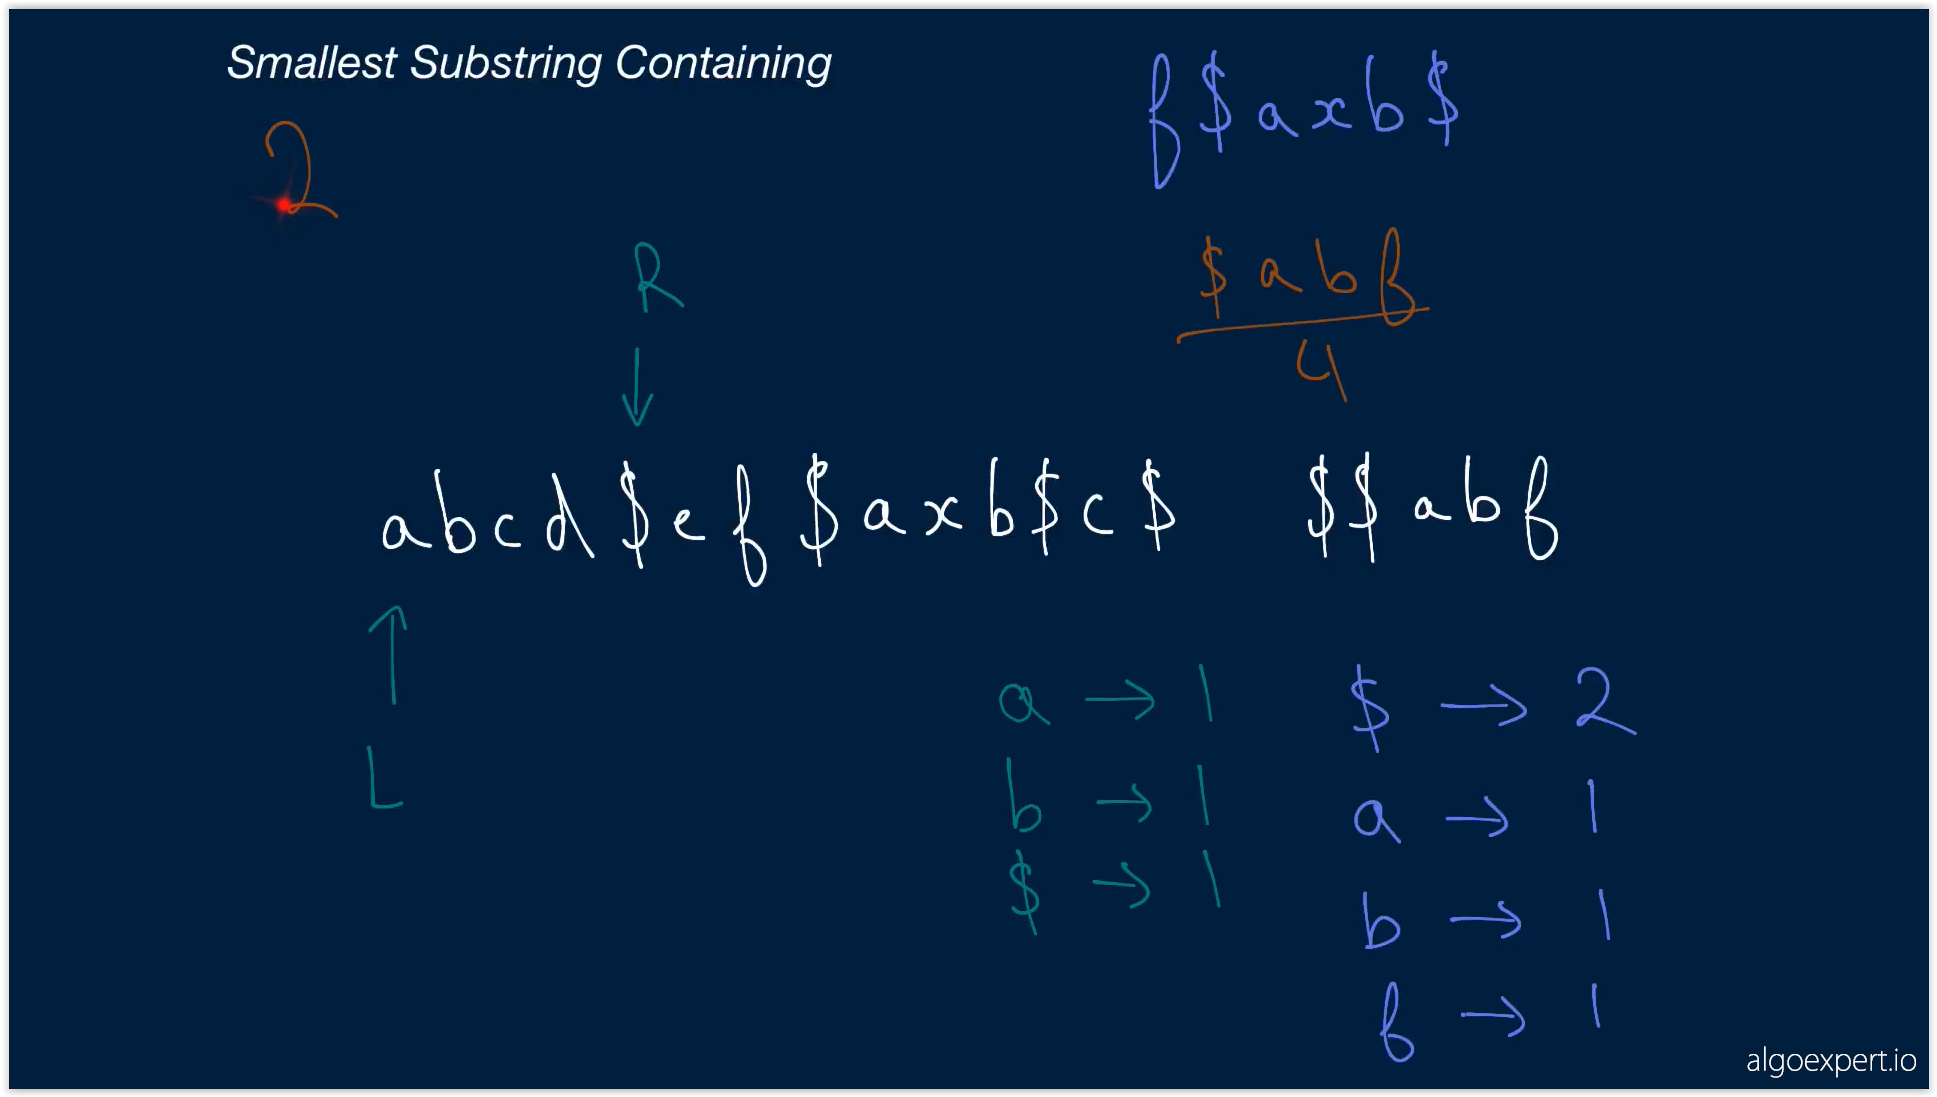 Smallest Substring Containing
f$axb$
2
$abf
4
R
abcd$ef$axb$c$ $$abf
L
a → 1
b → 1
$ → 1
$ → 2
a → 1
b → 1
f → 1
algoexpert.io